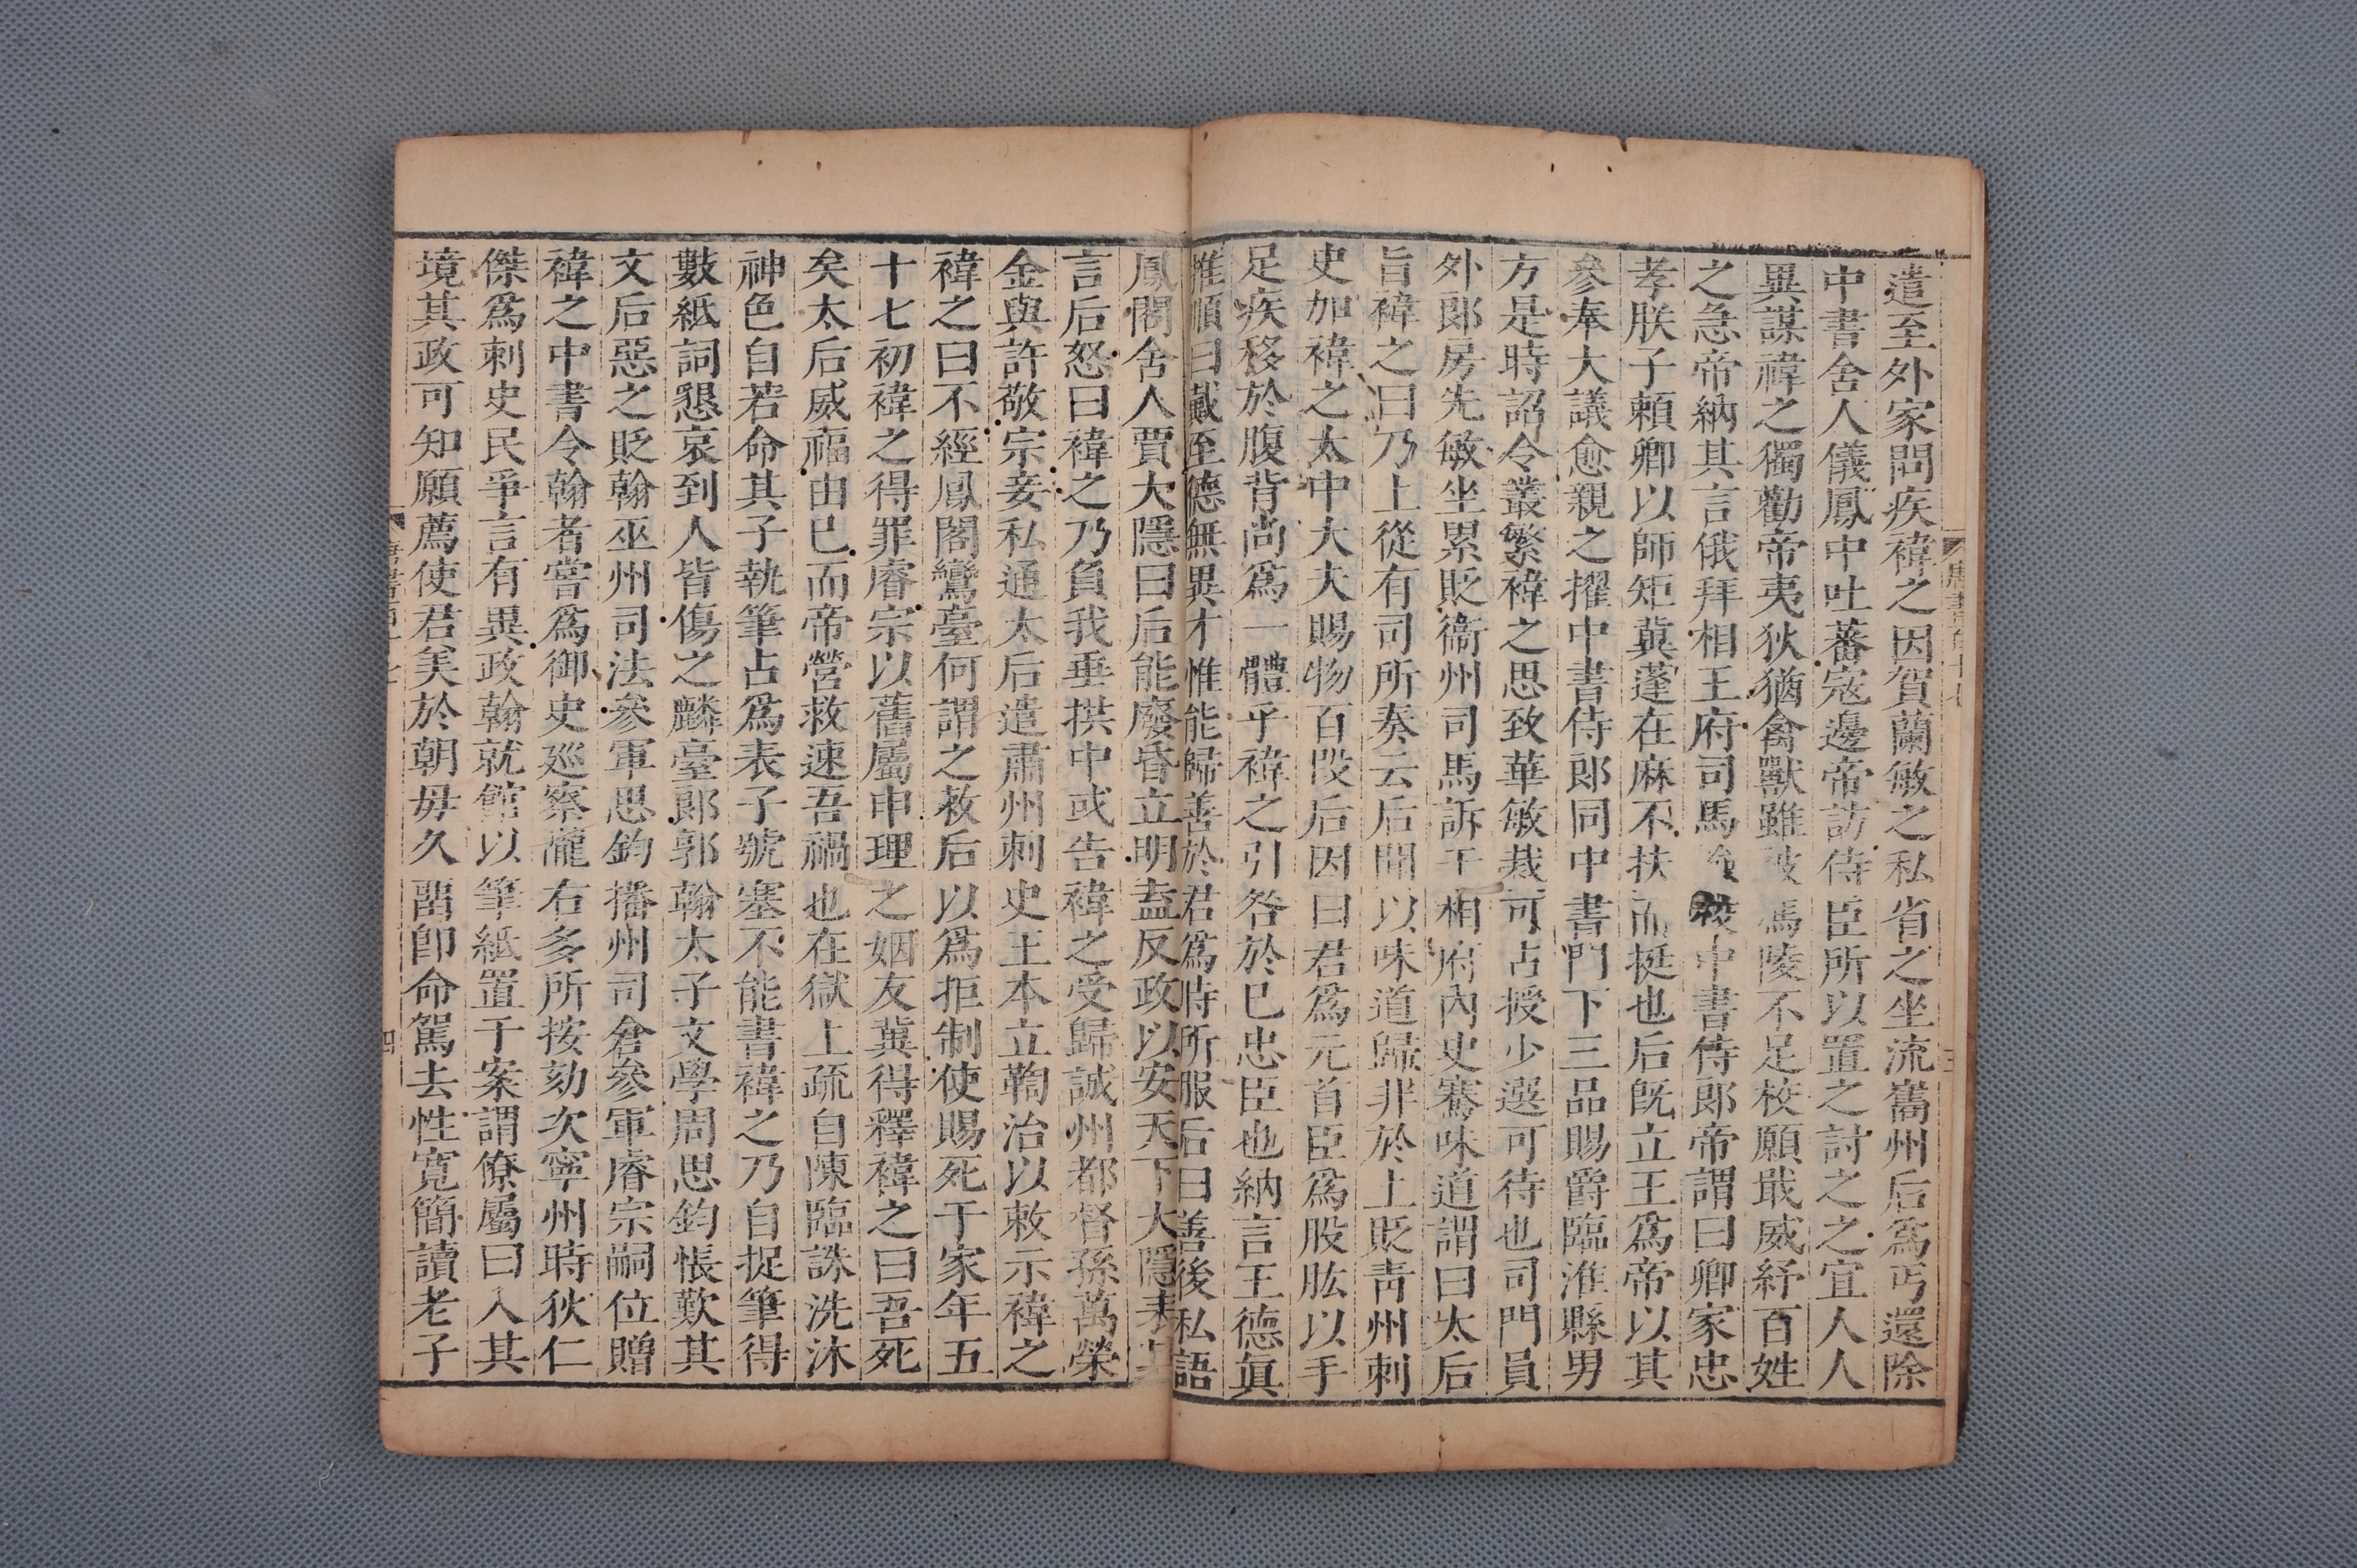 遣至外家問疾褘之因賀蘭敏之私省之坐流巂州后爲丐還除
中書舍人儀鳳中吐蕃寇邊帝訪侍臣所以置之討之之宜人人
異謀褘之獨勸帝夷狄猶禽獸雖被馮陵不足校願戢威紓百姓
之急帝納其言俄拜相王府司馬檢校中書侍郎帝謂曰卿家忠
孝朕子賴卿以師矩冀蓬在麻不扶而挺也后旣立王爲帝以其
參奉大議愈親之擢中書侍郎同中書門下三品賜爵臨淮縣男
方是時詔令叢繁褘之思致華敏裁可占授少選可待也司門員
外郎房先敏坐累貶衞州司馬訴于相府內史騫味道謂曰太后
旨褘之曰乃上從有司所奏云后聞以味道歸非於上貶靑州刺
史加褘之太中大夫賜物百段后因曰君爲元首臣爲股肱以手
足疾移於腹背尚爲一體乎褘之引咎於已忠臣也納言王德眞
推順曰戴至德無異才惟能歸善於君爲時所服后曰善後私語
鳳閣舍人賈大隱曰后能廢昏立明盍反政以安天下大隱表其
言后怒曰褘之乃負我垂拱中或告褘之受歸誠州都督孫萬榮
金與許敬宗妾私通太后遣肅州刺史王本立鞫治以敕示褘之
褘之曰不經鳳閣鸞臺何謂之敕后以爲拒制使賜死于家年五
十七初褘之得罪睿宗以舊屬申理之姻友冀得釋褘之曰吾死
矣太后威福由已而帝營救速吾禍也在獄上疏自陳臨誅洗沐
神色自若命其子執筆占爲表子號塞不能書褘之乃自捉筆得
數紙詞懇哀到人皆傷之麟臺郎郭翰太子文學周思鈞悵歎其
文后惡之貶翰巫州司法參軍思鈞播州司倉參軍睿宗嗣位贈
褘之中書令翰者嘗爲御史巡察隴右多所按劾次寧州時狄仁
傑爲刺史民爭言有異政翰就館以筆紙置于案謂僚屬曰入其
境其政可知願薦使君美於朝毋久畱卽命駕去性寬簡讀老子